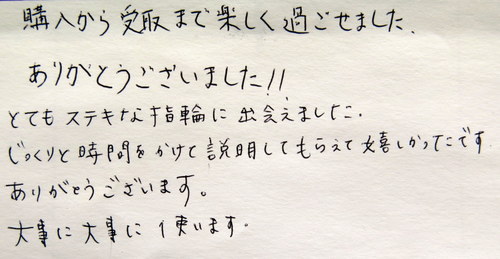 購入から受取まで楽しく過ごせました.
ありがとうございました!!
とても ステキな指輪に 出会えました.
じっくりと時間をかけて説明してもらえて嬉しかったです
ありがとうございます。
大事に大事に使います.